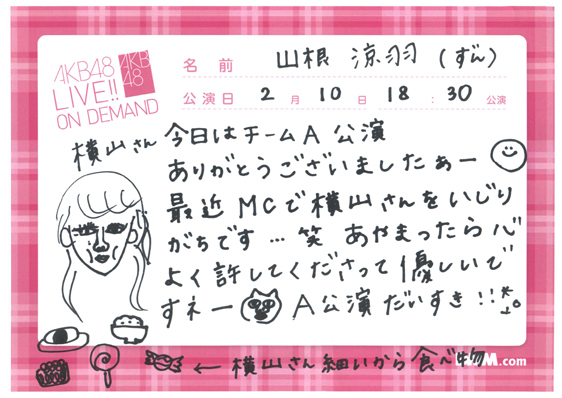 AKB48
LIVE!!
ON DEMAND
AKB
48
名前 山根 涼羽 (ずん)
公演日 2月 10日 18:30公演
横山さん
今日はチームA 公演
ありがとうございましたぁー
最近MCで横山さんをいじり
がちです…笑 あやまったら心
よく許してくださって優しいで
すネー A公演だいすき!!
← 横山さん細いから食べ物
.com